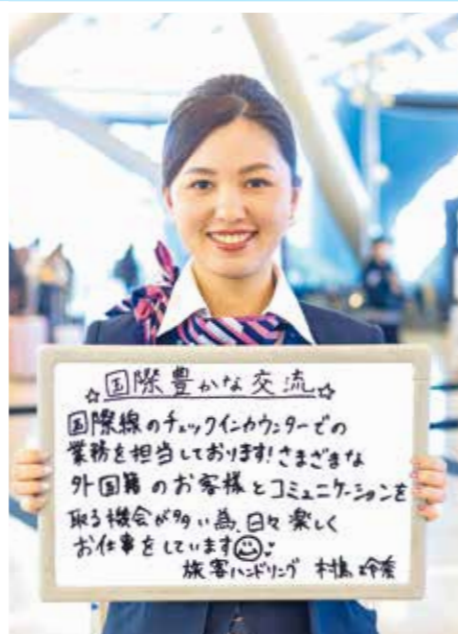 ☆国際豊かな交流☆
国際線のチェックインカウンターでの
業務を担当しております!さまざまな
外国籍のお客様とコミュニケーションを
取る機会が多い為、日々楽しく
お仕事をしています
旅客ハンドリング